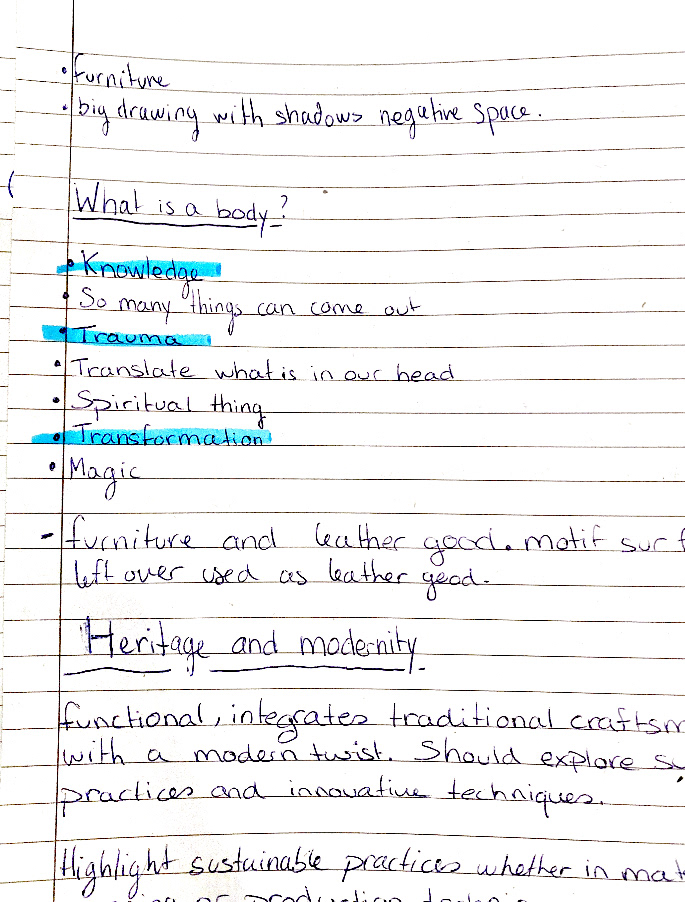 • furniture
• big drawing with shadows negative space.
What is a body?
• Knowledge
• So many things can come out
• Trauma
• Translate what is in our head
• Spiritual thing
• Transformation
• Magic
- furniture and leather good. motif surf
left over used as leather good.
Heritage and modernity
functional, integrates traditional craftsm
with a modern twist. Should explore su
practices and innovative techniques.
Highlight sustainable practices whether in mat
or production